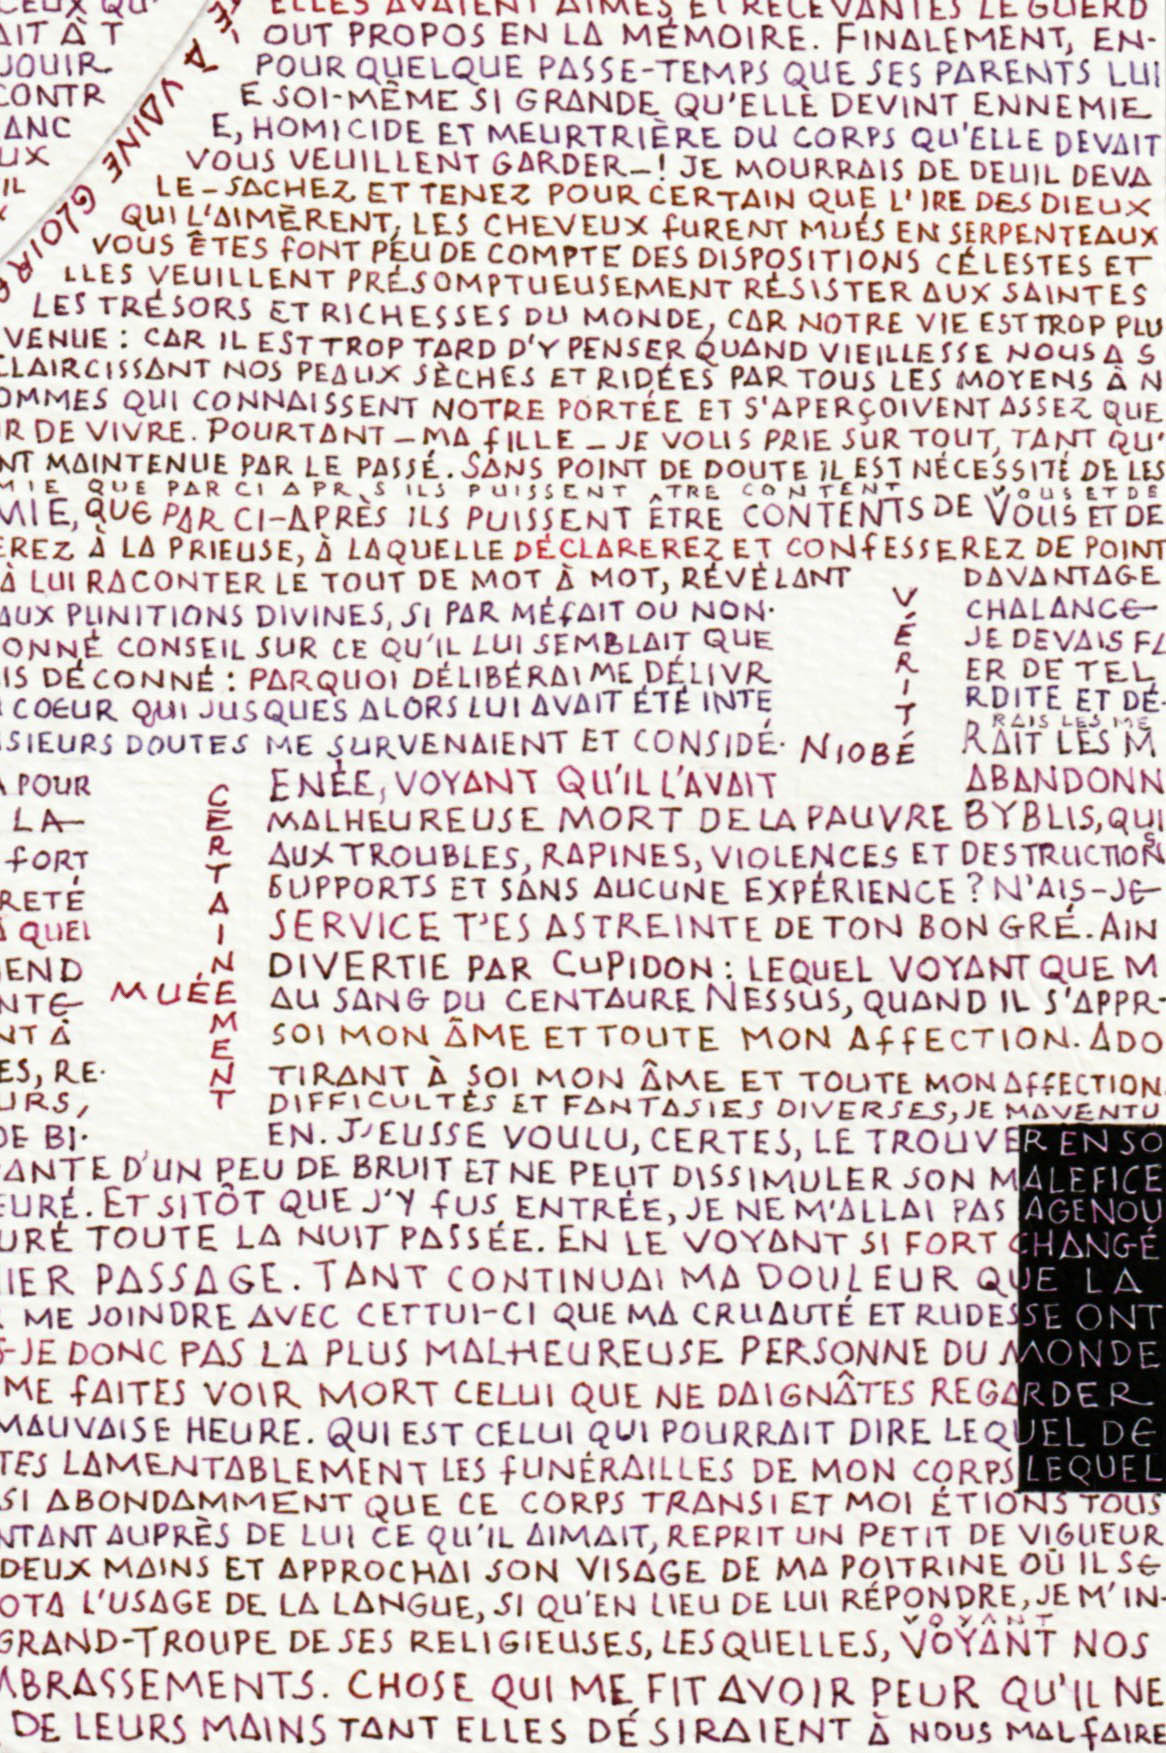 CEUX QU' ELLES AVAIENT AIMÉS ET RECEVANTES LE GUERD
AIT À T OUT PROPOS EN LA MÉMOIRE. FINALEMENT, EN-
JOUIR POUR QUELQUE PASSE-TEMPS QUE SES PARENTS LUI
CONTR E SOI-MÊME SI GRANDE QU'ELLE DEVINT ENNEMIE
ANC E, HOMICIDE ET MEURTRIÈRE DU CORPS QU'ELLE DEVAIT
UX VOUS VEUILLENT GARDER_! JE MOURRAIS DE DEUIL DEVA
IL LE_SACHEZ ET TENEZ POUR CERTAIN QUE L'IRE DES DIEUX
QUI L'AIMÈRENT, LES CHEVEUX FURENT MUÉS EN SERPENTEAUX
VAINE GLOIRE
VOUS ÊTES FONT PEU DE COMPTE DES DISPOSITIONS CÉLESTES ET
LLES VEUILLENT PRÉSOMPTUEUSEMENT RÉSISTER AUX SAINTES
LES TRÉSORS ET RICHESSES DU MONDE, CAR NOTRE VIE EST TROP PLU
VENUE : CAR IL EST TROP TARD D'Y PENSER QUAND VIEILLESSE NOUS A S
CLAIRCISSANT NOS PEAUX SÈCHES ET RIDÉES PAR TOUS LES MOYENS À N
OMMES QUI CONNAISSENT NOTRE PORTÉE ET S'APERÇOIVENT ASSEZ QUE
R DE VIVRE. POURTANT _ MA FILLE _ JE VOUS PRIE SUR TOUT, TANT QU'
NT MAINTENUE PAR LE PASSÉ. SANS POINT DE DOUTE IL EST NÉCESSITÉ DE LES
MIE QUE PAR CI APRÈS ILS PUISSENT ÊTRE CONTENT VOUS ET DE
MIE, QUE PAR CI-APRÈS ILS PUISSENT ÊTRE CONTENTS DE VOUS ET DE
EREZ À LA PRIEUSE, À LAQUELLE DÉCLAREREZ ET CONFESSEREZ DE POINT
À LUI RACONTER LE TOUT DE MOT À MOT, RÉVÉLANT DAVANTAGE
AUX PUNITIONS DIVINES, SI PAR MÉFAIT OU NON- CHALANCE
ONNÉ CONSEIL SUR CE QU'IL LUI SEMBLAIT QUE JE DEVAIS FA
IS DÉCONNÉ : PARQUOI DÉLIBÉRAI ME DÉLIVR ER DE TEL
COEUR QUI JUSQUES ALORS LUI AVAIT ÉTÉ INTE RDITE ET DÉ-
RAIS LES ME
SIEURS DOUTES ME SURVENAIENT ET CONSIDÉ- RAIT LES M
VÉRIT
NIOBÉ
A POUR ENÉE, VOYANT QU'ILL'AVAIT ABANDONN
LA MALHEUREUSE MORT DE LA PAUVRE BYBLIS, QUI
FORT AUX TROUBLES, RAPINES, VIOLENCES ET DESTRUCTIONS
RETÉ SUPPORTS ET SANS AUCUNE EXPÉRIENCE ? N'AIS-JE
À QUEL SERVICE T'ES ASTREINTE DE TON BON GRÉ. AIN
END DIVERTIE PAR CUPIDON : LEQUEL VOYANT QUE M
NTE AU SANG DU CENTAURE NESSUS, QUAND IL S'APPR-
NT À SOI MON ÂME ET TOUTE MON AFFECTION. ADO
ES, RE- TIRANT À SOI MON ÂME ET TOUTE MON AFFECTION
URS, DIFFICULTÉS ET FANTASIES DIVERSES, JE MAVENTU
DE BI- EN. J'EUSSE VOULU, CERTES, LE TROUVER EN SO
CERTAINEMENT
MUÉE
ANTE D'UN PEU DE BRUIT ET NE PEUT DISSIMULER SON MALEFICE
EURÉ. ET SITÔT QUE J'Y FUS ENTRÉE, JE NE M'ALLAI PAS AGENOU
URÉ TOUTE LA NUIT PASSÉE. EN LE VOYANT SI FORT CHANGÉ
IER PASSAGE. TANT CONTINUAI MA DOULEUR QUE LA
ME JOINDRE AVEC CETTUI-CI QUE MA CRUAUTÉ ET RUDESSE ONT
-JE DONC PAS LA PLUS MALHEUREUSE PERSONNE DU MONDE
ME FAITES VOIR MORT CELUI QUE NE DAIGNÂTES REGARDER
MAUVAISE HEURE. QUI EST CELUI QUI POURRAIT DIRE LEQUEL DE
TES LAMENTABLEMENT LES FUNÉRAILLES DE MON CORPS LEQUEL
SI ABONDAMMENT QUE CE CORPS TRANSI ET MOI ÉTIONS TOUS
NTANT AUPRÈS DE LUI CE QU'IL AIMAIT, REPRIT UN PETIT DE VIGUEUR
DEUX MAINS ET APPROCHAI SON VISAGE DE MA POITRINE OÙ IL SE
OTA L'USAGE DE LA LANGUE, SI QU'EN LIEU DE LUI RÉPONDRE, JE M'IN-
VOYANT
GRAND-TROUPE DE SES RELIGIEUSES, LESQUELLES, VOYANT NOS
ABRASSEMENTS. CHOSE QUI ME FIT AVOIR PEUR QU'IL NE
DE LEURS MAINS TANT ELLES DÉSIRAIENT À NOUS MALFAIRE